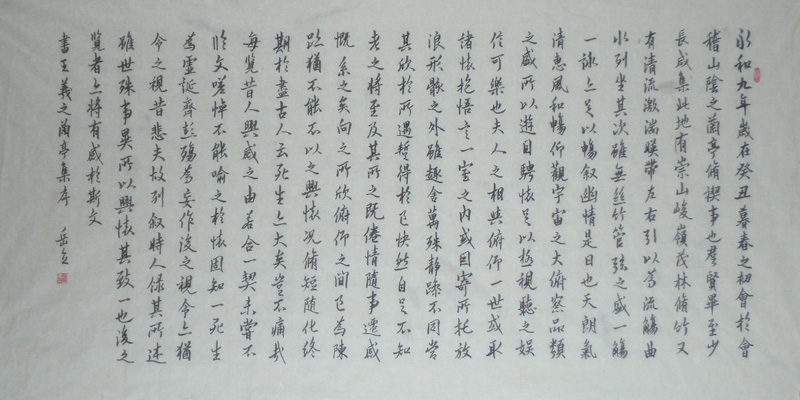 永和九年歲在癸丑暮春之初會於會
稽山陰之蘭亭脩禊事也羣賢畢至少
長咸集此地有崇山峻嶺茂林脩竹又
有清流激湍暎帶左右引以為流觴曲
水列坐其次雖無絲竹管弦之盛一觴
一詠亦足以暢叙幽情是日也天朗氣
清惠風和暢仰觀宇宙之大俯察品類
之盛所以遊目騁懷足以極視聽之娛
信可樂也夫人之相與俯仰一世或取
諸懷抱悟言一室之內或因寄所托放
浪形骸之外雖趣舍萬殊靜躁不同當
其欣於所遇暫得於己快然自足不知
老之將至及其所之既倦情隨事遷感
慨系之矣向之所欣俯仰之間已為陳
跡猶不能不以之興懷況脩短隨化終
期於盡古人云死生亦大矣豈不痛哉
每覽昔人興感之由若合一契未嘗不
臨文嗟悼不能喻之於懷固知一死生
為虛誕齊彭殤為妄作後之視今亦猶
今之視昔悲夫故列叙時人錄其所述
雖世殊事異所以興懷其致一也後之
覽者亦將有感於斯文
書王羲之蘭亭集序 岳